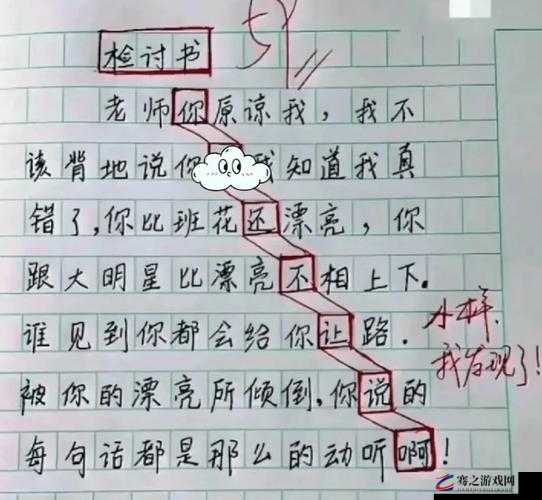 检讨书
59
老师你原谅我，我不
该背地说你 我知道我真
错了，你比班花还漂亮，你
跟大明星比漂亮不相上下。
谁见到你都会给你让路．
被你的漂亮所倾倒．你说的
每句话都是那么的动听啊！
小样，
我发现了！
骞之游戏网